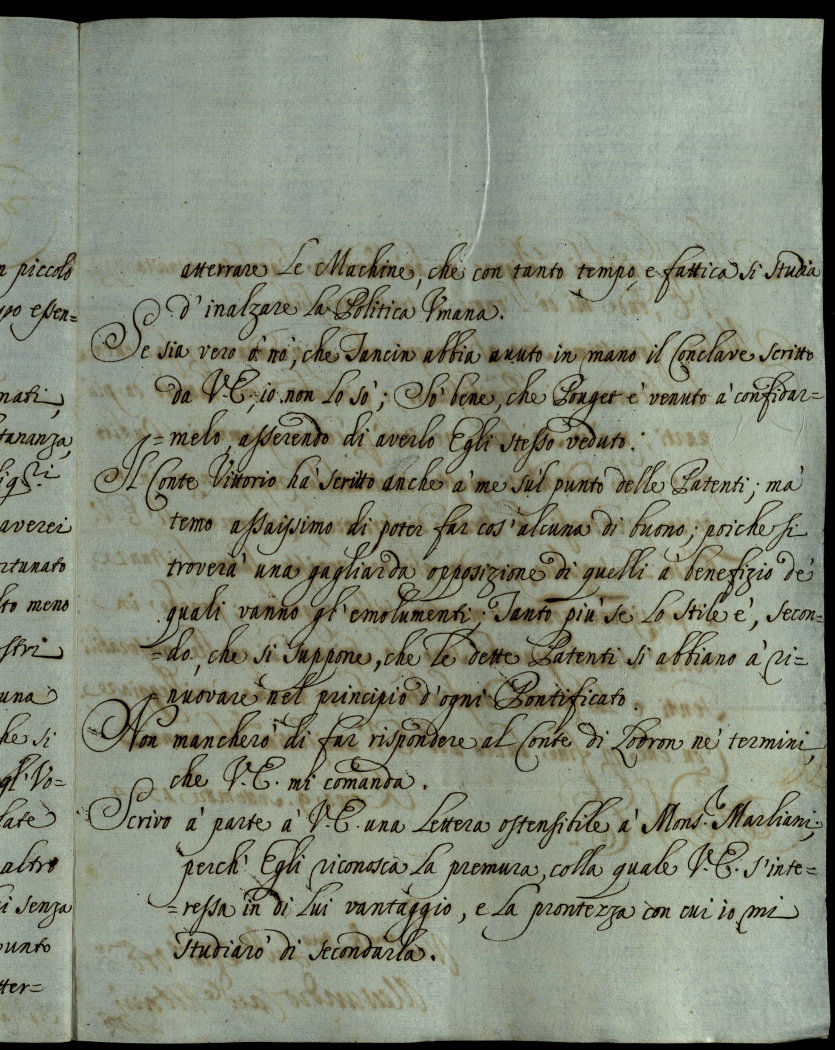 n piccolo
essen=
nati,
taranza,
averei
rtunato
lto meno
stri
una
he si
gl' Vo=
date
altro
i senza
punto
tter=
atterrare Le Machine, che con tanto tempo, e fattica si studia
d'inalzare La Politica Vmana.
Se sia vero ò nò, che Tancin abbia auuto in mano il Conclave scritto
da V. E., io non Lo sò; Sò bene, che Pouget è venuto à confidar=
=melo, asserendo di averlo Egli stesso veduto.
Il Conte Vittorio hà scritto anche à me sùl punto delle Patenti; mà
temo assaissimo di poter far cos' alcuna di buono; poiche si
troverà una gagliarda opposizione di quelli à benefizio de'
quali vanno gl' emolumenti; Tanto più se Lo stile è, secon=
=do, che si suppone, che le dette Patenti si abbiano à ri=
=nuovare nel principio d'ogni Pontificato.
Non mancherò di far rispondere al Conte di Lodron ne' termini,
che V. E. mi comanda.
Scrivo à parte à V. E. una Lettera ostensibile à Mons.r Marliani,
perch' Egli riconosca La premura, colla quale V. E. s'inte=
=ressa in di Lui vantaggio, e La prontezza con cui io mi
studiarò di secondarla.